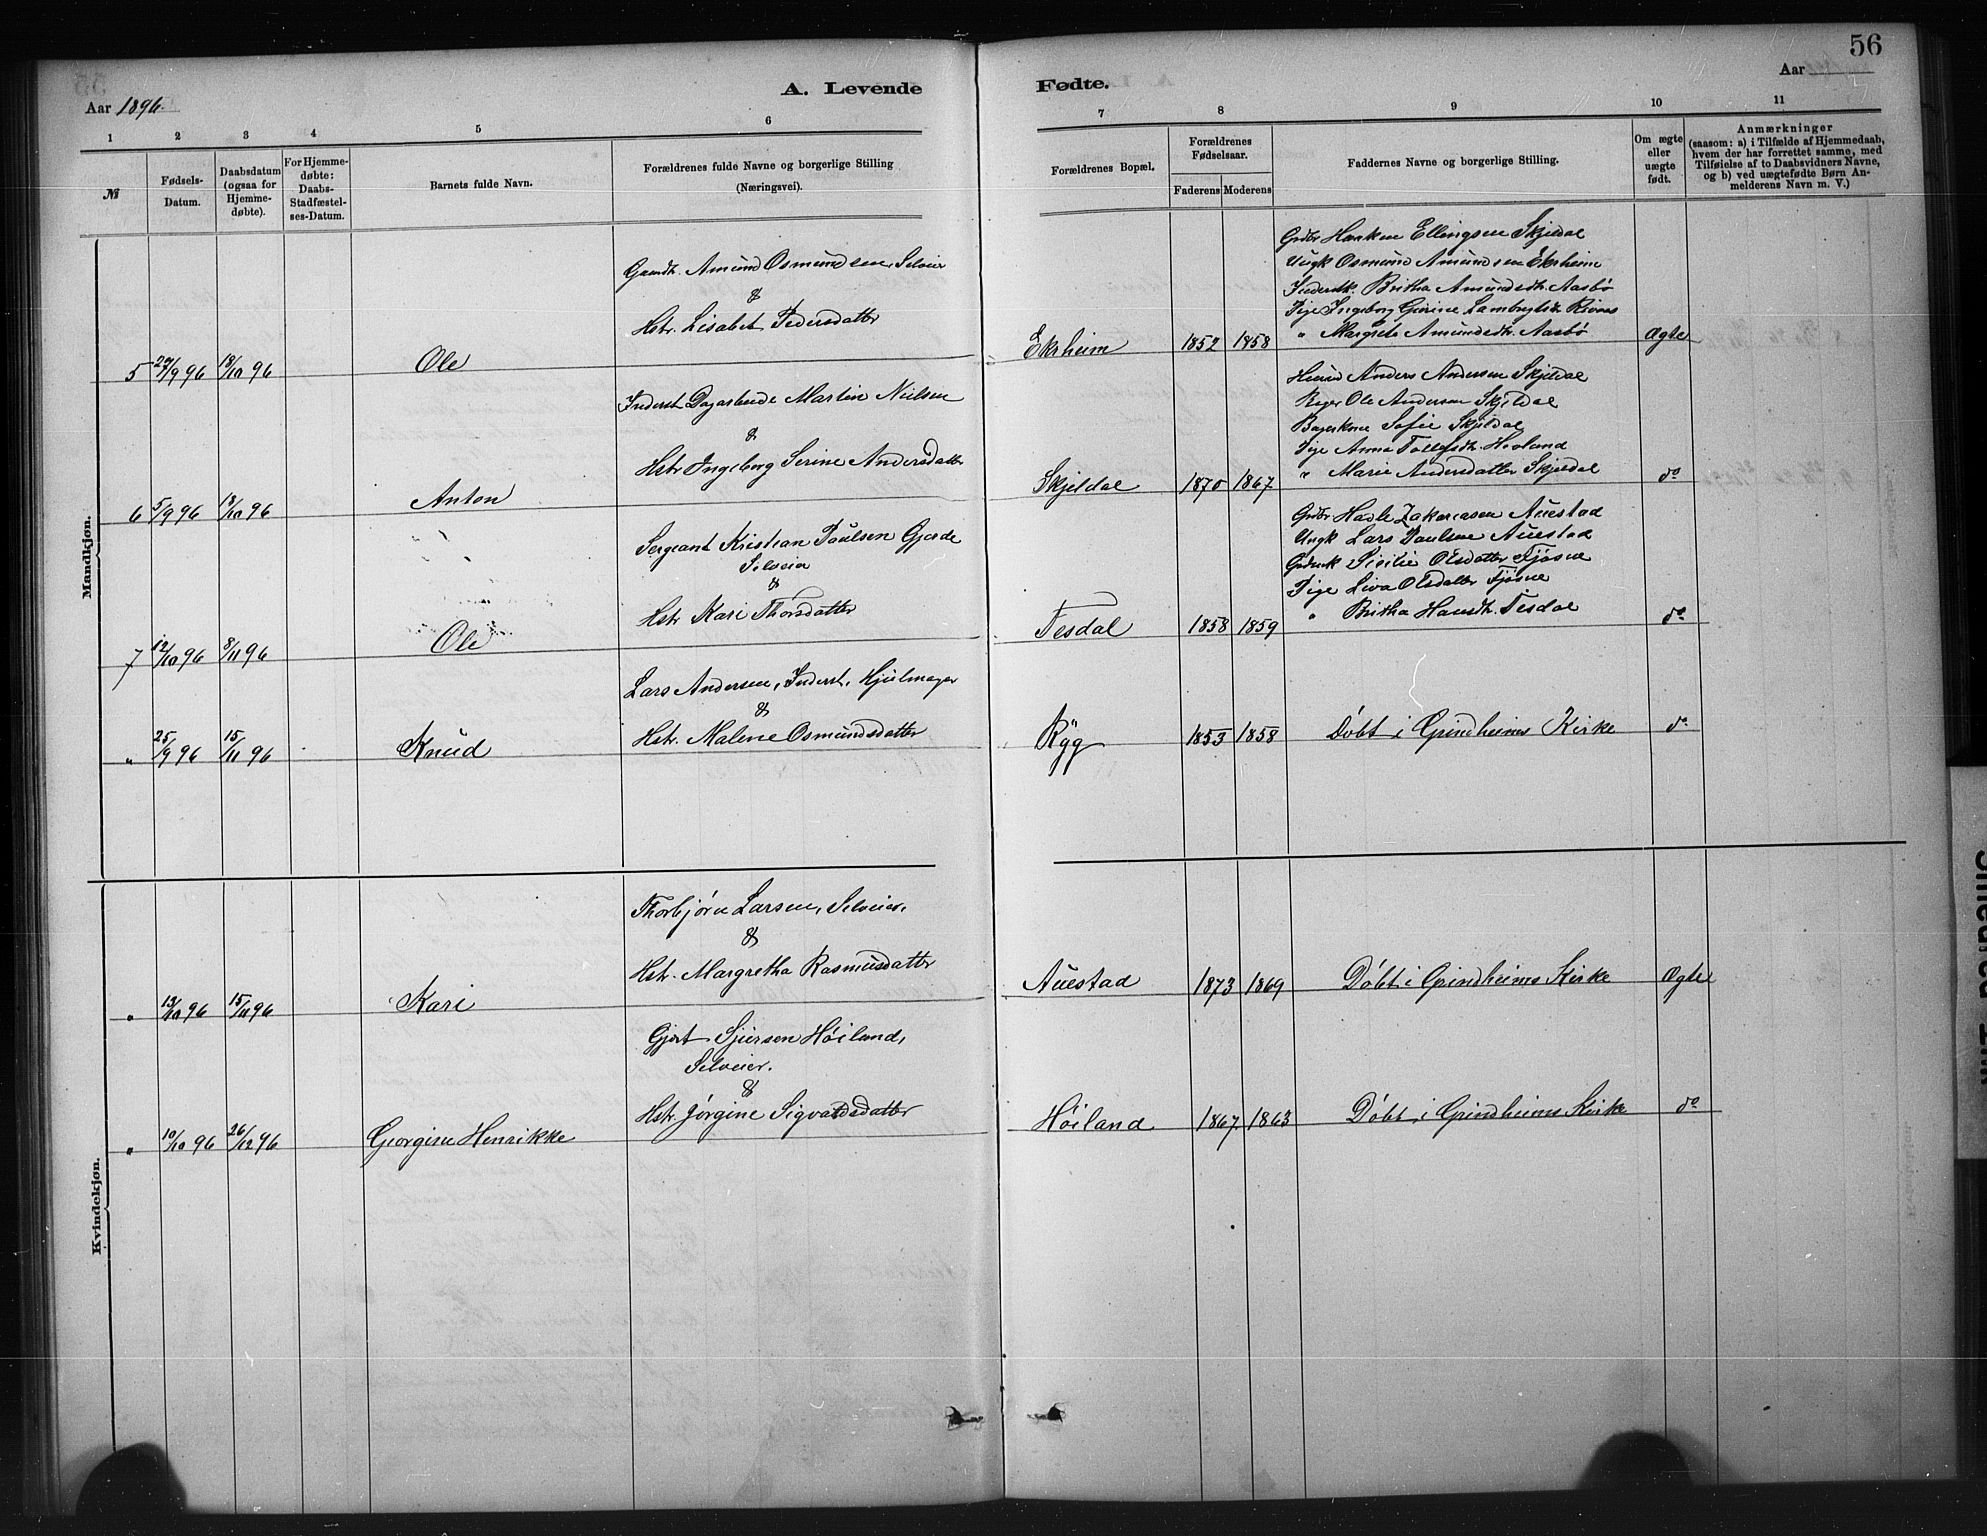 56
Aar 1896.
A. Levende
Fødte.
Aar
1 2 3 4 5 6
7 8 9 10 11
№
Fødsels-
Datum.
Daabsdatum
(ogsaa for
Hjemme-
døbte).
For Hjemme-
døbte:
Daabs-
Stadfæstel-
ses-Datum.
Barnets fulde Navn.
Forældrenes fulde Navne og borgerlige Stilling
(Næringsvei).
Forældrenes Bopæl.
Forældrenes
Fødselsaar.
Faderens Moderens
Faddernes Navne og borgerlige Stilling.
Om ægte
eller
uægte
født.
Anmærkninger
(saasom: a) i Tilfælde af Hjemmedaab,
hvem der har forrettet samme, med
Tilføielse af to Daabsvidners Navne,
og b) ved uægtefødte Børn An-
melderens Navn m. V.)
Mandkjøn.
Gaardb. Amund Osmundsen, Selveier
&
Hstr. Lisabet Pedersdatter
5 29/9 96 18/10 96 Ole
Ekrheim 1852 1858
Grdbr Haaken Ellingsen Skjeldal
Ungk Osmund Amundsen Ekrheim
Inderstk. Britha Amundsdtr. Aasbø
Pige Ingeborg Gurine
" Margrete Amundsdtr. Aasbø
Ægte
Inderst Dagarbeide Martin Nielsen
&
Hstr Ingeborg Serine Andersdatter
6 5/9 96 18/10 96 Anton
Skjeldal 1870 1867
Anders Andersen Skjeldal
Ole Andersen Skjeldal
Sofie Skjeldal
Pige Anna Hovland
" Marie Andersdatter Skjeldal
do
Sergeant Kristian Paulsen Gjerde
Selveier
&
Hstr Kari Thorsdatter
7 12/10 96 8/11 96 Ole
Tesdal 1858 1859
Grdbr Havle Zakariasen Auestad
Ungk Lars Paulsen Auestad
Sisilie Olsdatter Fjøsne
Pige Liva Olsdatter Fjøsne
" Britha Hansdtr. Tesdal
do
Lars Andersen, Inderst, Hjulmager
&
Hstr. Malene Osmundsdatter
" 25/9 96 15/11 96 Knud
Ryg 1853 1858 Døbt i Grindheims Kirke do
Kvindekjøn.
Thorbjørn Larsen, Selveier.
&
Hstr. Margretha Rasmusdatter
" 13/10 96 15/11 96 Kari
Auestad 1873 1869 Døbt i Grindheims Kirke Ægte
Gjert Sjursen Høiland,
Selveier.
&
Hstr. Jørgine Sigvaldsdatter
" 10/10 96 26/12 96 Georgine Henrikke
Høiland 1867 1863 Døbt i Grindheims Kirke do